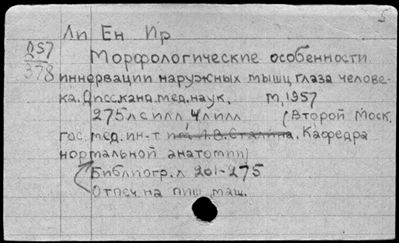 5
Ли Ен Ир
Д57
378
Морфологические особенности
иннервации наружных мышц глаза челове-
ка. Дисс. канд. мед. наук. М, 1957
275л с илл, 4л илл. (Второй Моск.
гос. мед. ин-т им. И.В. Сталина. Кафедра
нормальной анатомии)
Библиогр. л 201-275
Отпеч на пиш. маш.